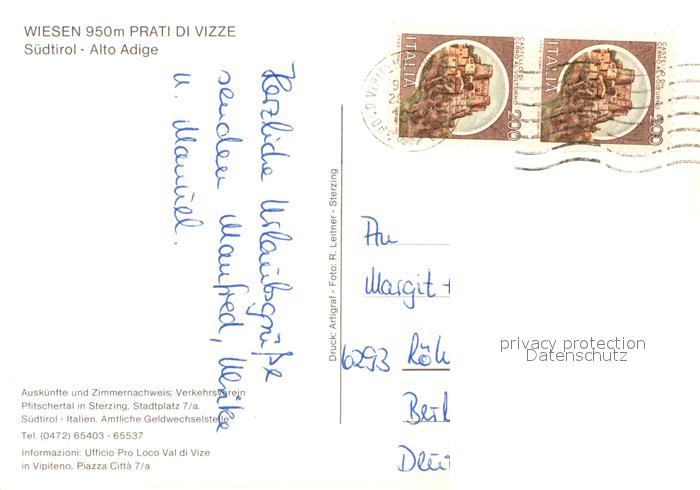 WIESEN 950m PRATI DI VIZZE
Südtirol - Alto Adige
Herzliche Urlaubsgrüße
senden Manfred, Ulrike
u. Manuel.
Auskünfte und Zimmernachweis: Verkehrsverein
Pfitschertal in Sterzing, Stadtplatz 7/a.
Südtirol - Italien. Amtliche Geldwechselstelle
Tel. (0472) 65403 - 65537
Informazioni: Ufficio Pro Loco Val di Vize
in Vipiteno, Piazza Città 7/a
Druck: Artigraf - Foto: R. Leitner - Sterzing
ITALIA
200
ITALIA
200
An
Margit +
6293 Röh
privacy protection
Datenschutz